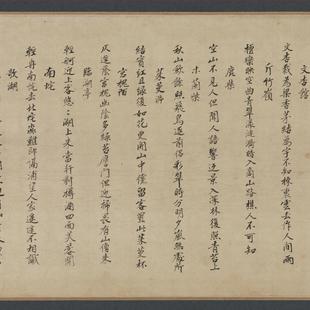 文杏館
文杏裁為梁香茅結為宇不知棟裏雲去作人間雨
斤竹嶺
檀欒映空曲青翠漾漣漪暗入商山路樵人不可知
鹿柴
空山不見人但聞人語響返景入深林復照青苔上
木蘭柴
秋山斂餘照飛鳥逐前侶彩翠時分明夕嵐無處所
茱萸沜
結實紅且綠復如花更開山中儻留客置此茱萸杯
宮槐陌
仄逕蔭宮槐幽陰多綠苔應門但迎掃畏有山僧來
臨湖亭
輕舸迎上客悠〻湖上來當軒對樽酒四面芙蓉開
南垞
輕舟南垞去北垞淼難即隔浦望人家遙〻不相識
欹湖